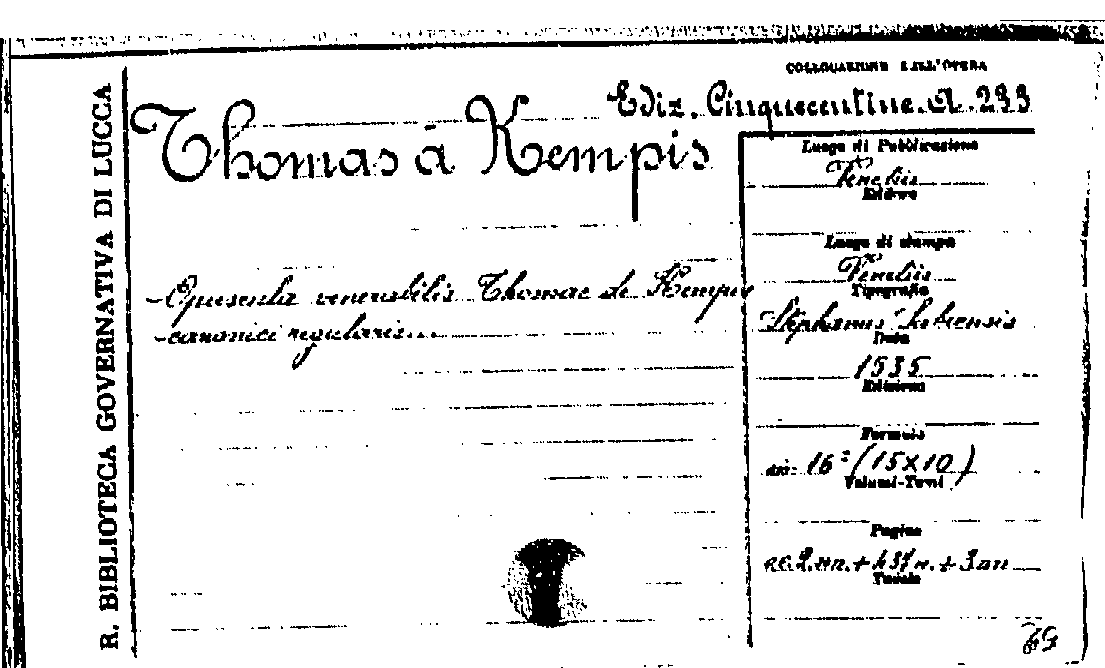 R. BIBLIOTECA GOVERNATIVA DI LUCCA
COLLOCAZIONE DELL'OPERA
Ediz. Cinquecentine. A. 233
Thomas à Kempis
Opuscula venerabilis Thomae de Kempis
canonici regularis...
Luogo di Pubblicazione
Venetiis
Editore
Luogo di stampa
Venetiis
Tipografia
Stephanus Sabiensis
Data
1535
Edizione
Formato
in-16° (15X10)
Volumi-Tomi
Pagine
cc. 2 nn. + 437 n. + 3 nn
Tavole